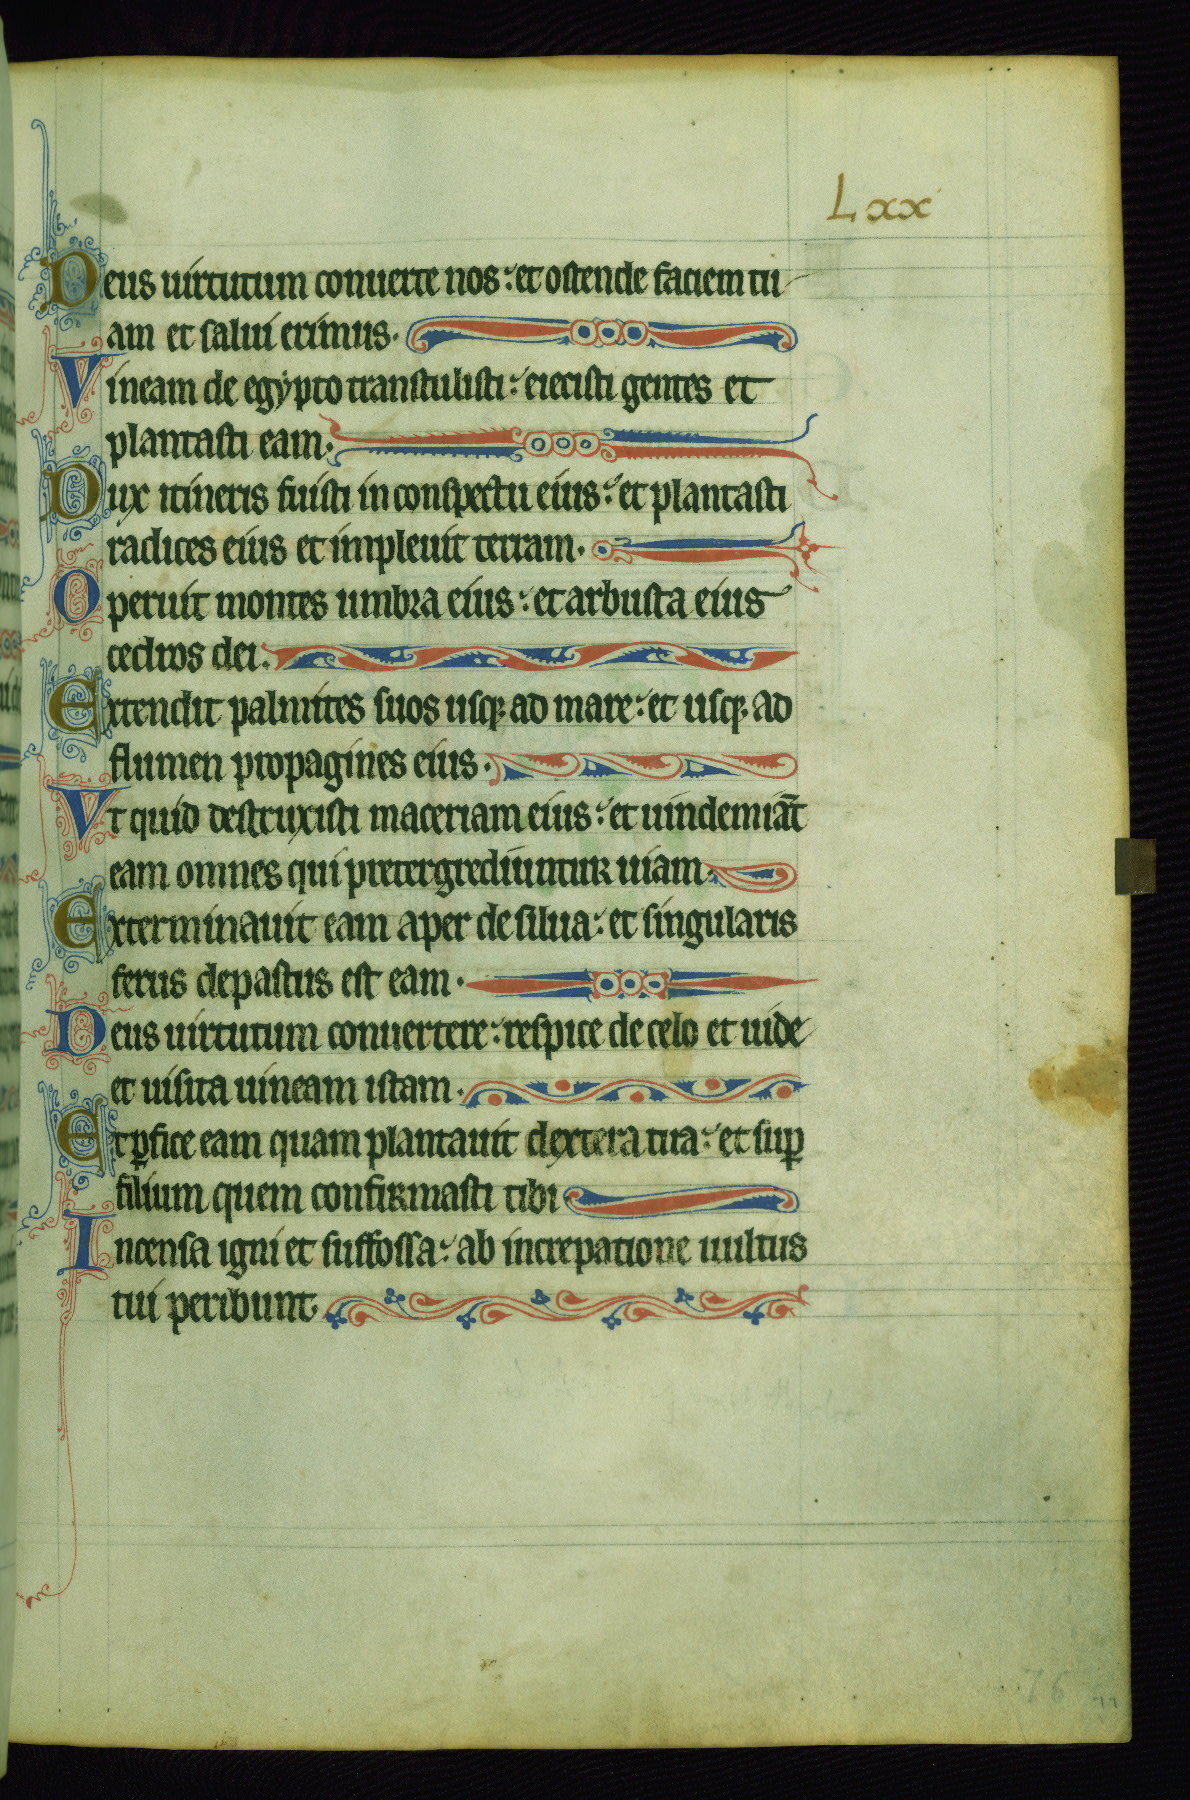 Lxx
Deus uirtutum conuerte nos: et ostende faciem tu
am et salui erimus.
Vineam de egypto transtulisti: eiecisti gentes et
plantasti eam.
Dux itineris fuisti in conspectu eius: et plantasti
radices eius et impleuit terram.
Operuit montes umbra eius: et arbusta eius
cedros dei.
Extendit palmites suos usq; ad mare: et usq; ad
flumen propagines eius.
Vt quid destruxisti maceriam eius: et uindemiāt
eam omnes qui pretergrediuntur uiam.
Exterminauit eam aper de silua: et singularis
ferus depastus est eam.
Deus uirtutum conuertere: respice de celo et uide
et uisita uineam istam.
Et ꝑfice eam quam plantauit dextera tua: et suꝑ
filium quem confirmasti tibi
Incensa igni et suffossa: ab increpatione uultus
tui peribunt.
76